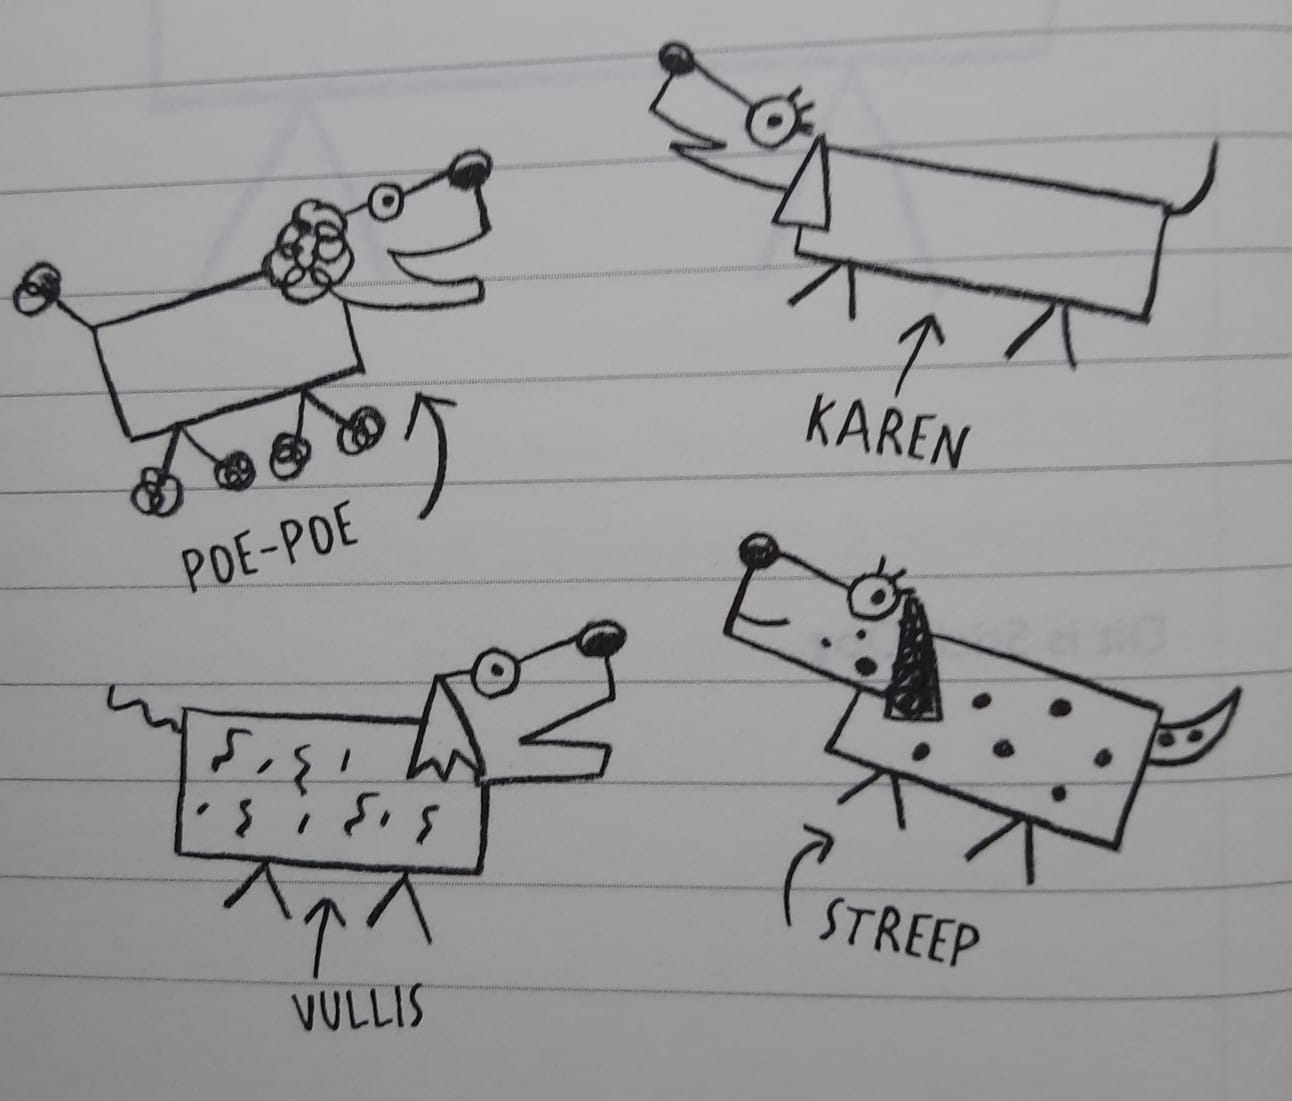 KAREN
POE-POE
STREEP
VULLIS